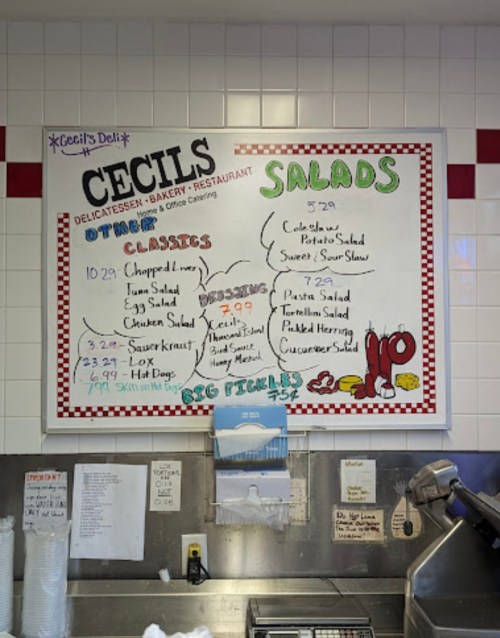 *Cecil's Deli*
CECILS
DELICATESSEN • BAKERY • RESTAURANT
Home & Office Catering
OTHER
CLASSICS
10.29 Chopped Liver
Tuna Salad
Egg Salad
Chicken Salad
3.29 - Sauerkraut
23.29 - Lox
6.99 - Hot Dogs
7.99 Skin on Hot Dogs
DRESSING
7.99
Cecil
Thousand Island
Bird Sauce
Honey Mustard
BIG PICKLES
75¢
SALADS
5.29
Coleslaw
Potato Salad
Sweet & Sour Slaw
7.29
Pasta Salad
Tortellini Salad
Pickled Herring
Cucumber Salad
LOX
PORTIONS
NOT
Do Not Leave